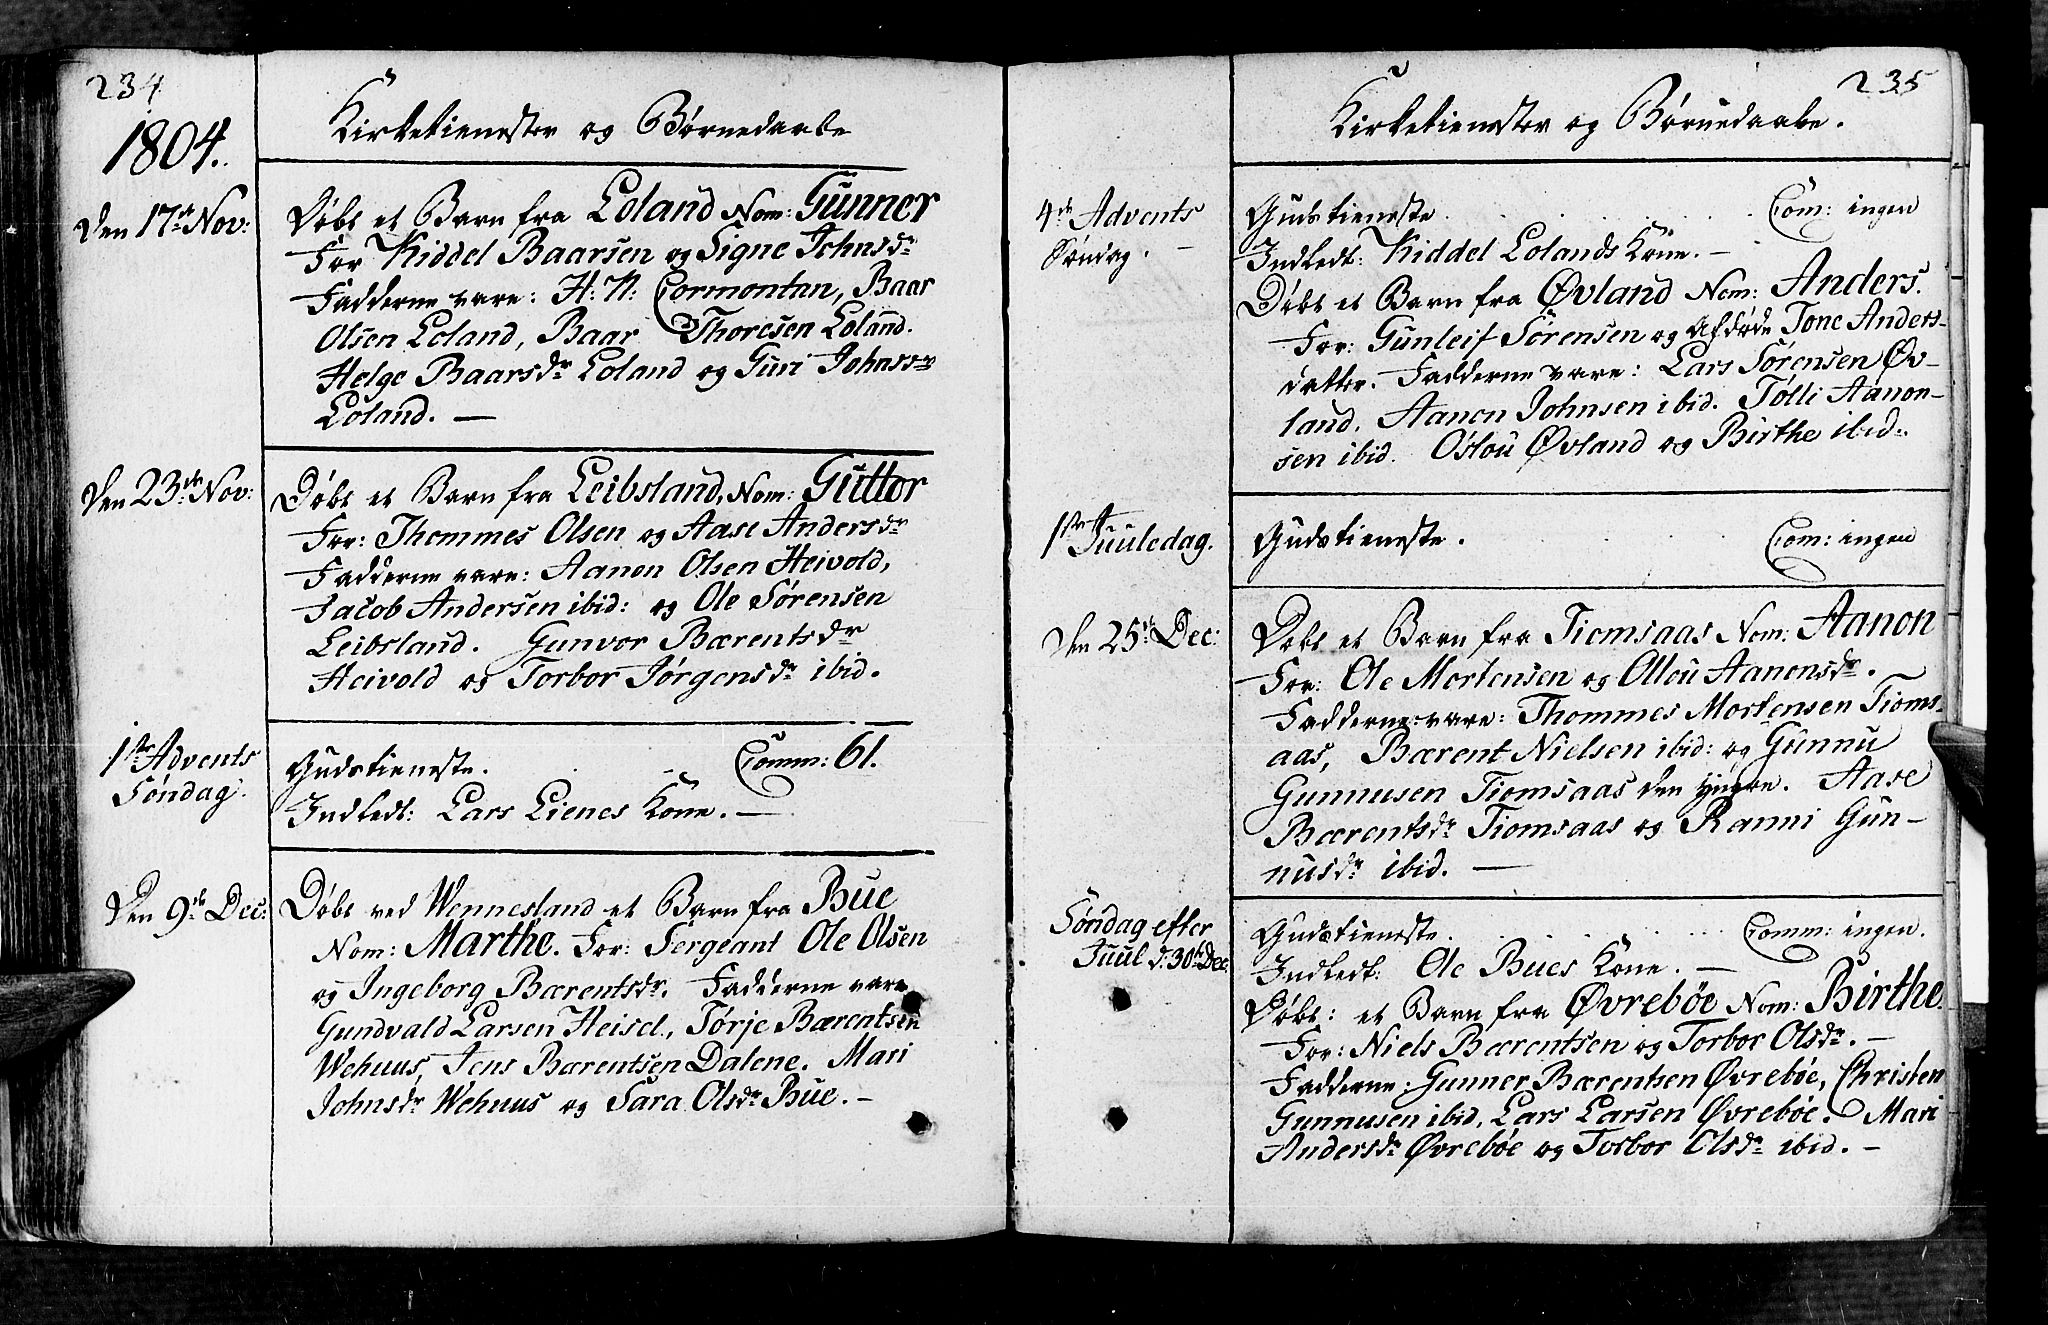 234
1804.
Kirketienester og Børnedaabe
Den 17de Nov:
Døbt et Barn fra Loland Nom: Gunner
For Kiddel Baarsen og Signe Johnsdr
Fadderne vare: H: N: Cormontan, Baar
Olsen Loland, Baar Thoresen Loland.
Helge Baarsdr Loland og Guri Johnsdr
Loland. —
Den 23de Nov:
Døbt et Barn fra Leibsland, Nom: Guttor
For: Thommes Olsen og Aase Andersdr
Fadderne vare: Aanon Olsen Heivold,
Jacob Andersen ibid: og Ole Sørensen
Leibsland. Gunvor Bærentsdr
Heivold og Torbor Jørgensdr ibid.
1ste Advents
Søndag.
Gudstieneste. Comm: 61.
Indledt: Lars Lienes Kone. —
Den 9de Dec:
Døbt ved Wennesland et Barn fra Bue
Nom: Marthe. For: Sergeant Ole Olsen
og Ingeborg Bærentsdr. Fadderne vare
Gundvald Larsen Heisel, Tørje Bærentsen
Wehuus, Jens Bærentsen Dalene. Mari
Johnsdr Wehuus og Sara Olsdr Bue. —
235
Kirketienester og Børnedaabe.
4de Advents
Søndag. —
Gudstieneste. Com: ingen
Indledt: Kiddel Lolands Kone. —
Døbt et Barn fra Øvland Nom: Anders.
For: Gunleif Sørensen og Afdøde Tone Anders-
datter. Fadderne vare: Lars Sørensen Øv-
land, Aanon Johnsen ibid. Tølli Aanon-
sen ibid. Oslou Øvland og Birthe ibid.
1ste Juuledag.
Gudstieneste. Com: ingen
Den 25de Dec:
Døbt et Barn fra Tiomsaas Nom: Aanon
For: Ole Mortensen og Ollou Aanonsdr.
Fadderne vare: Thommes Mortensen Tioms-
aas, Bærent Nielsen ibid: og Gunnu
Gunnusen Tiomsaas den yngre. Aase
Bærentsdr Tiomsaas og Ranni Gun-
nusdr ibid. —
Søndag efter
Juul d: 30te Dec
Gudstieneste. Comm: ingen.
Indledt: Ole Bues Kone. —
Døbt: et Barn fra Øvrebøe Nom: Birthe.
For: Niels Bærentsen og Torbor Olsdr. —
Fadderne: Gunner Bærentsen Øvrebøe, Christen
Gunnusen ibid, Lars Larsen Øvrebøe. Mari
Andersdr Øvrebøe og Torbor Olsdr ibid. —